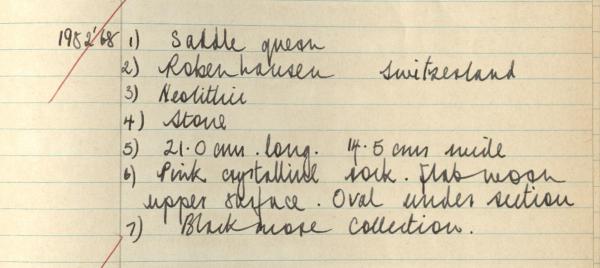 1952'68 1) Saddle quern
2) Robenhausen Switzerland
3) Neolithic
4) Stone
5) 21.0 cms. long. 14.5 cms wide
6) Pink crystalline rock. Flat worn
upper surface. Oval under section
7) Blackmore Collection.